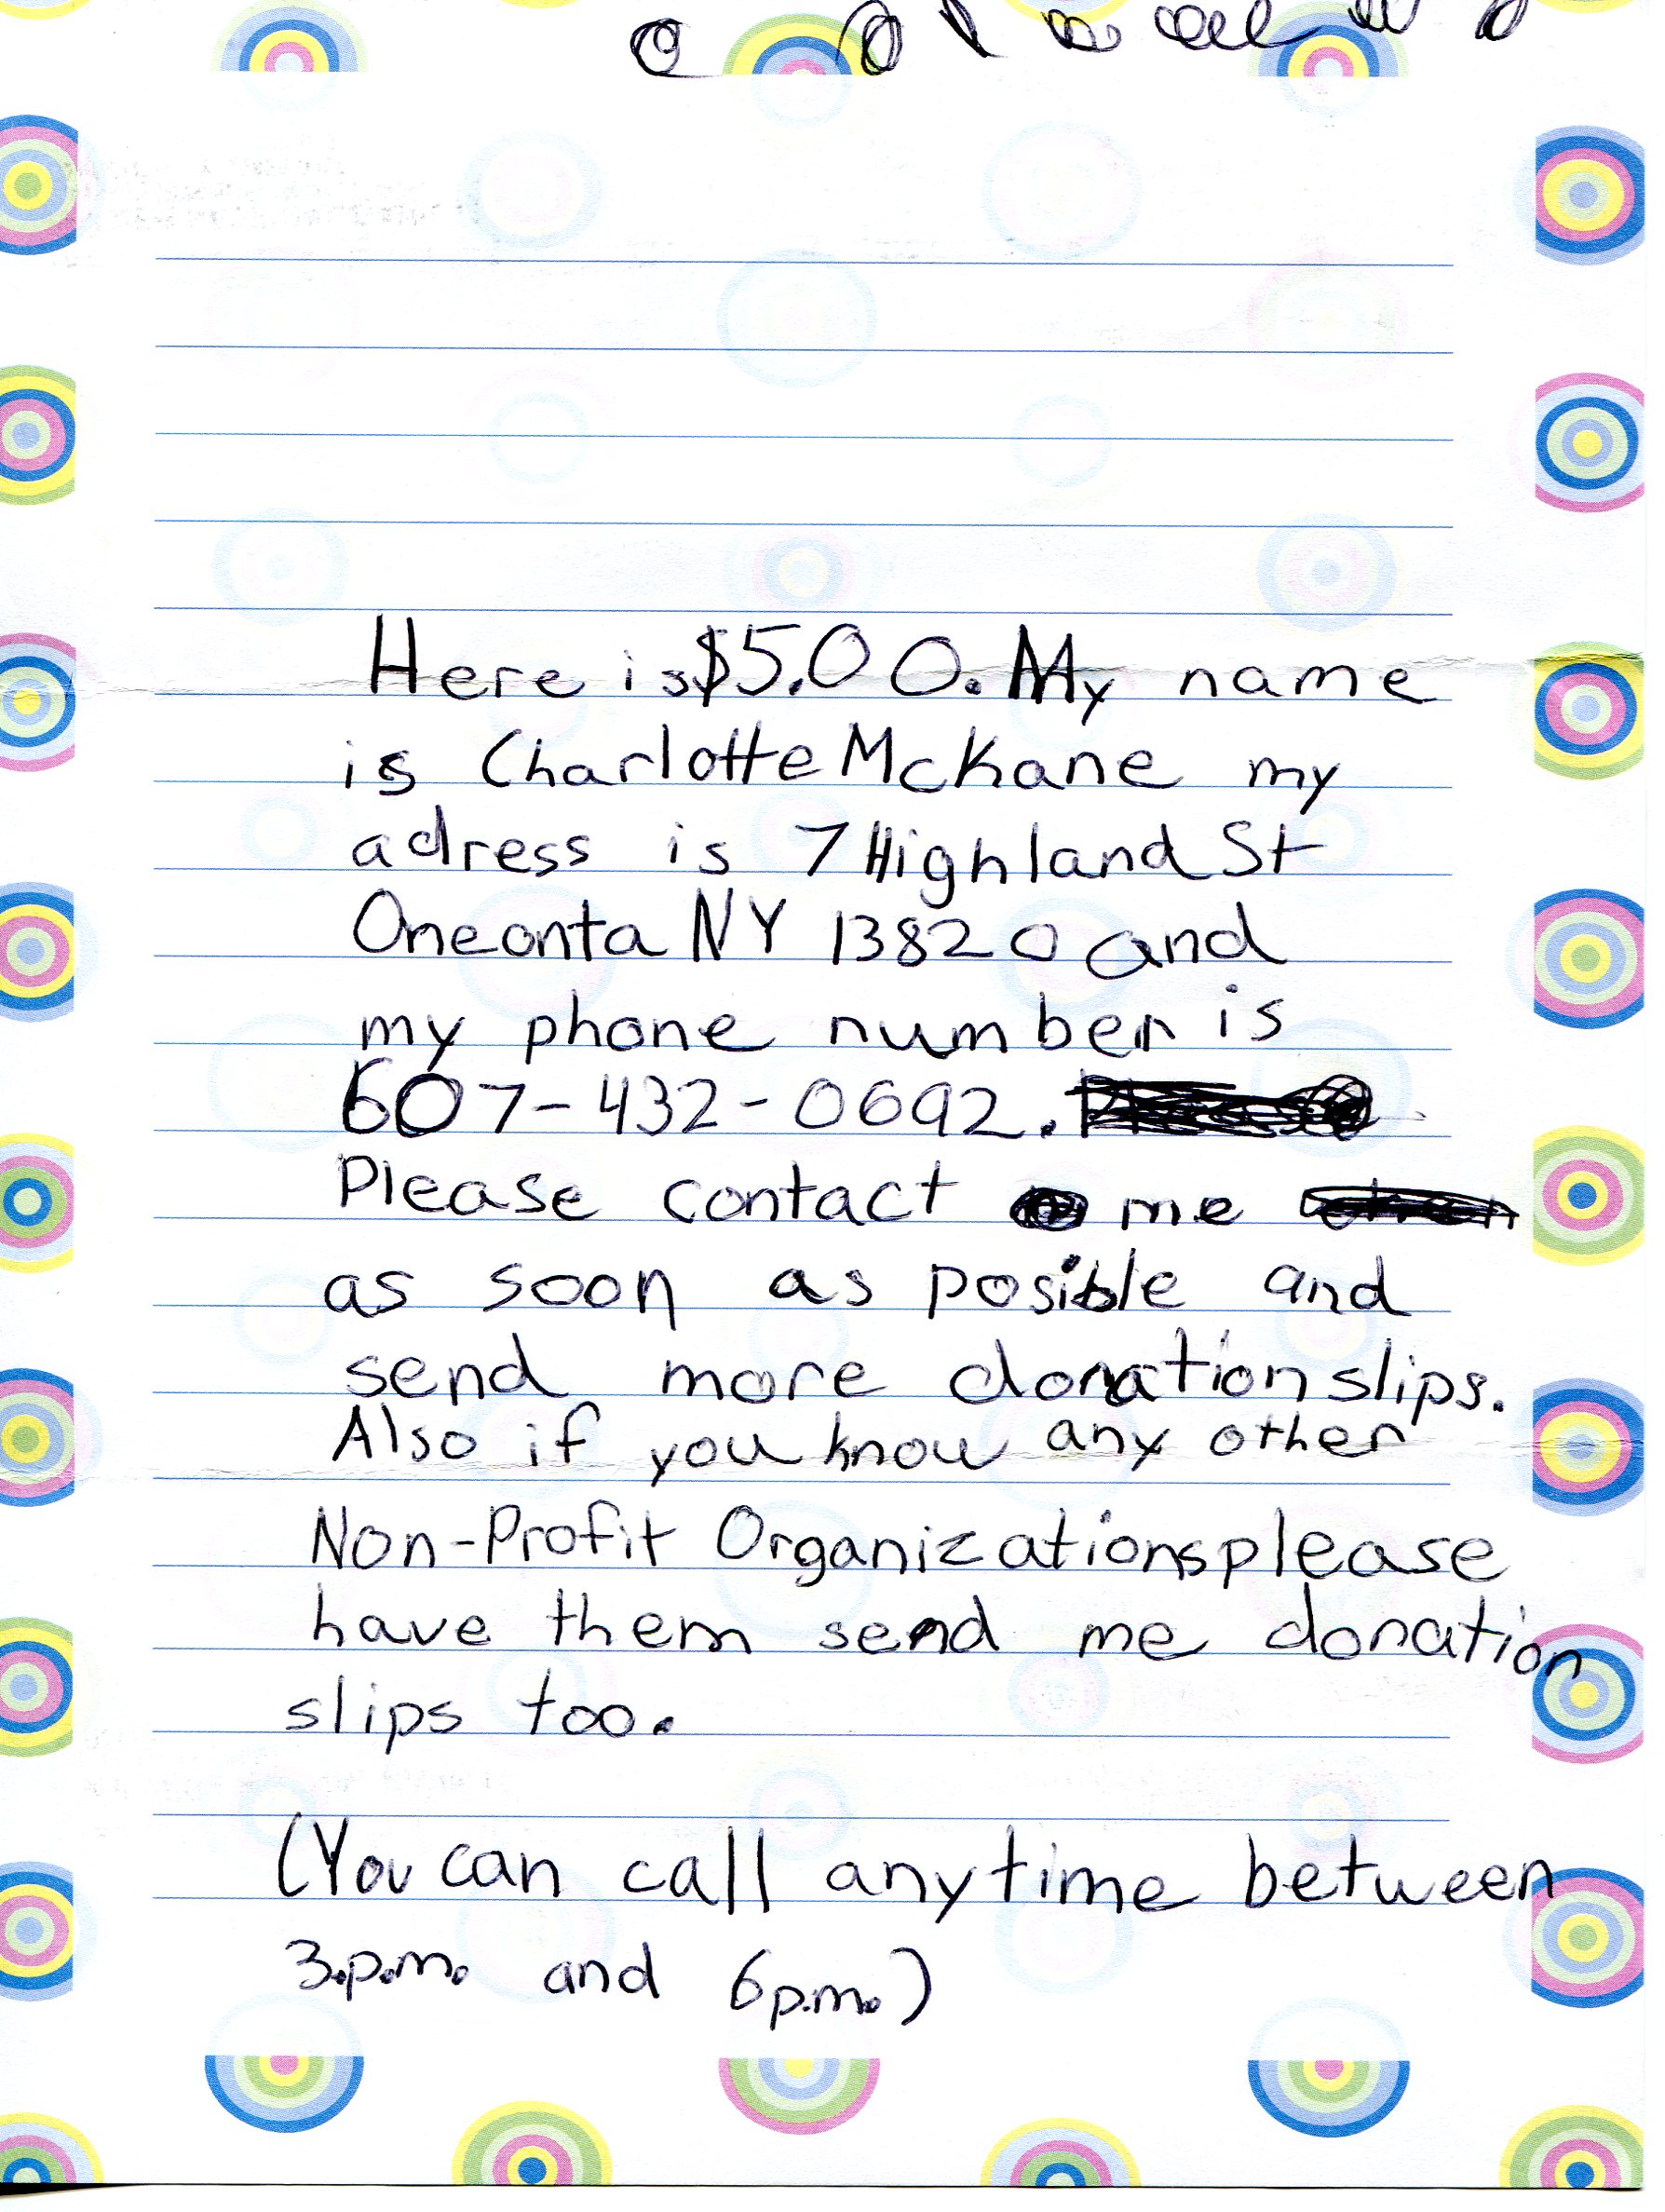 Here is $5.00. My name
is Charlotte McKane my
adress is 7 Highland St
Oneonta NY 13820 and
my phone number is
607-432-0692.
Please contact me
as soon as posible and
send more donation slips.
Also if you know any other
Non-Profit Organizations please
have them send me donation
slips too.
(You can call anytime between
3.p.m. and 6p.m.)